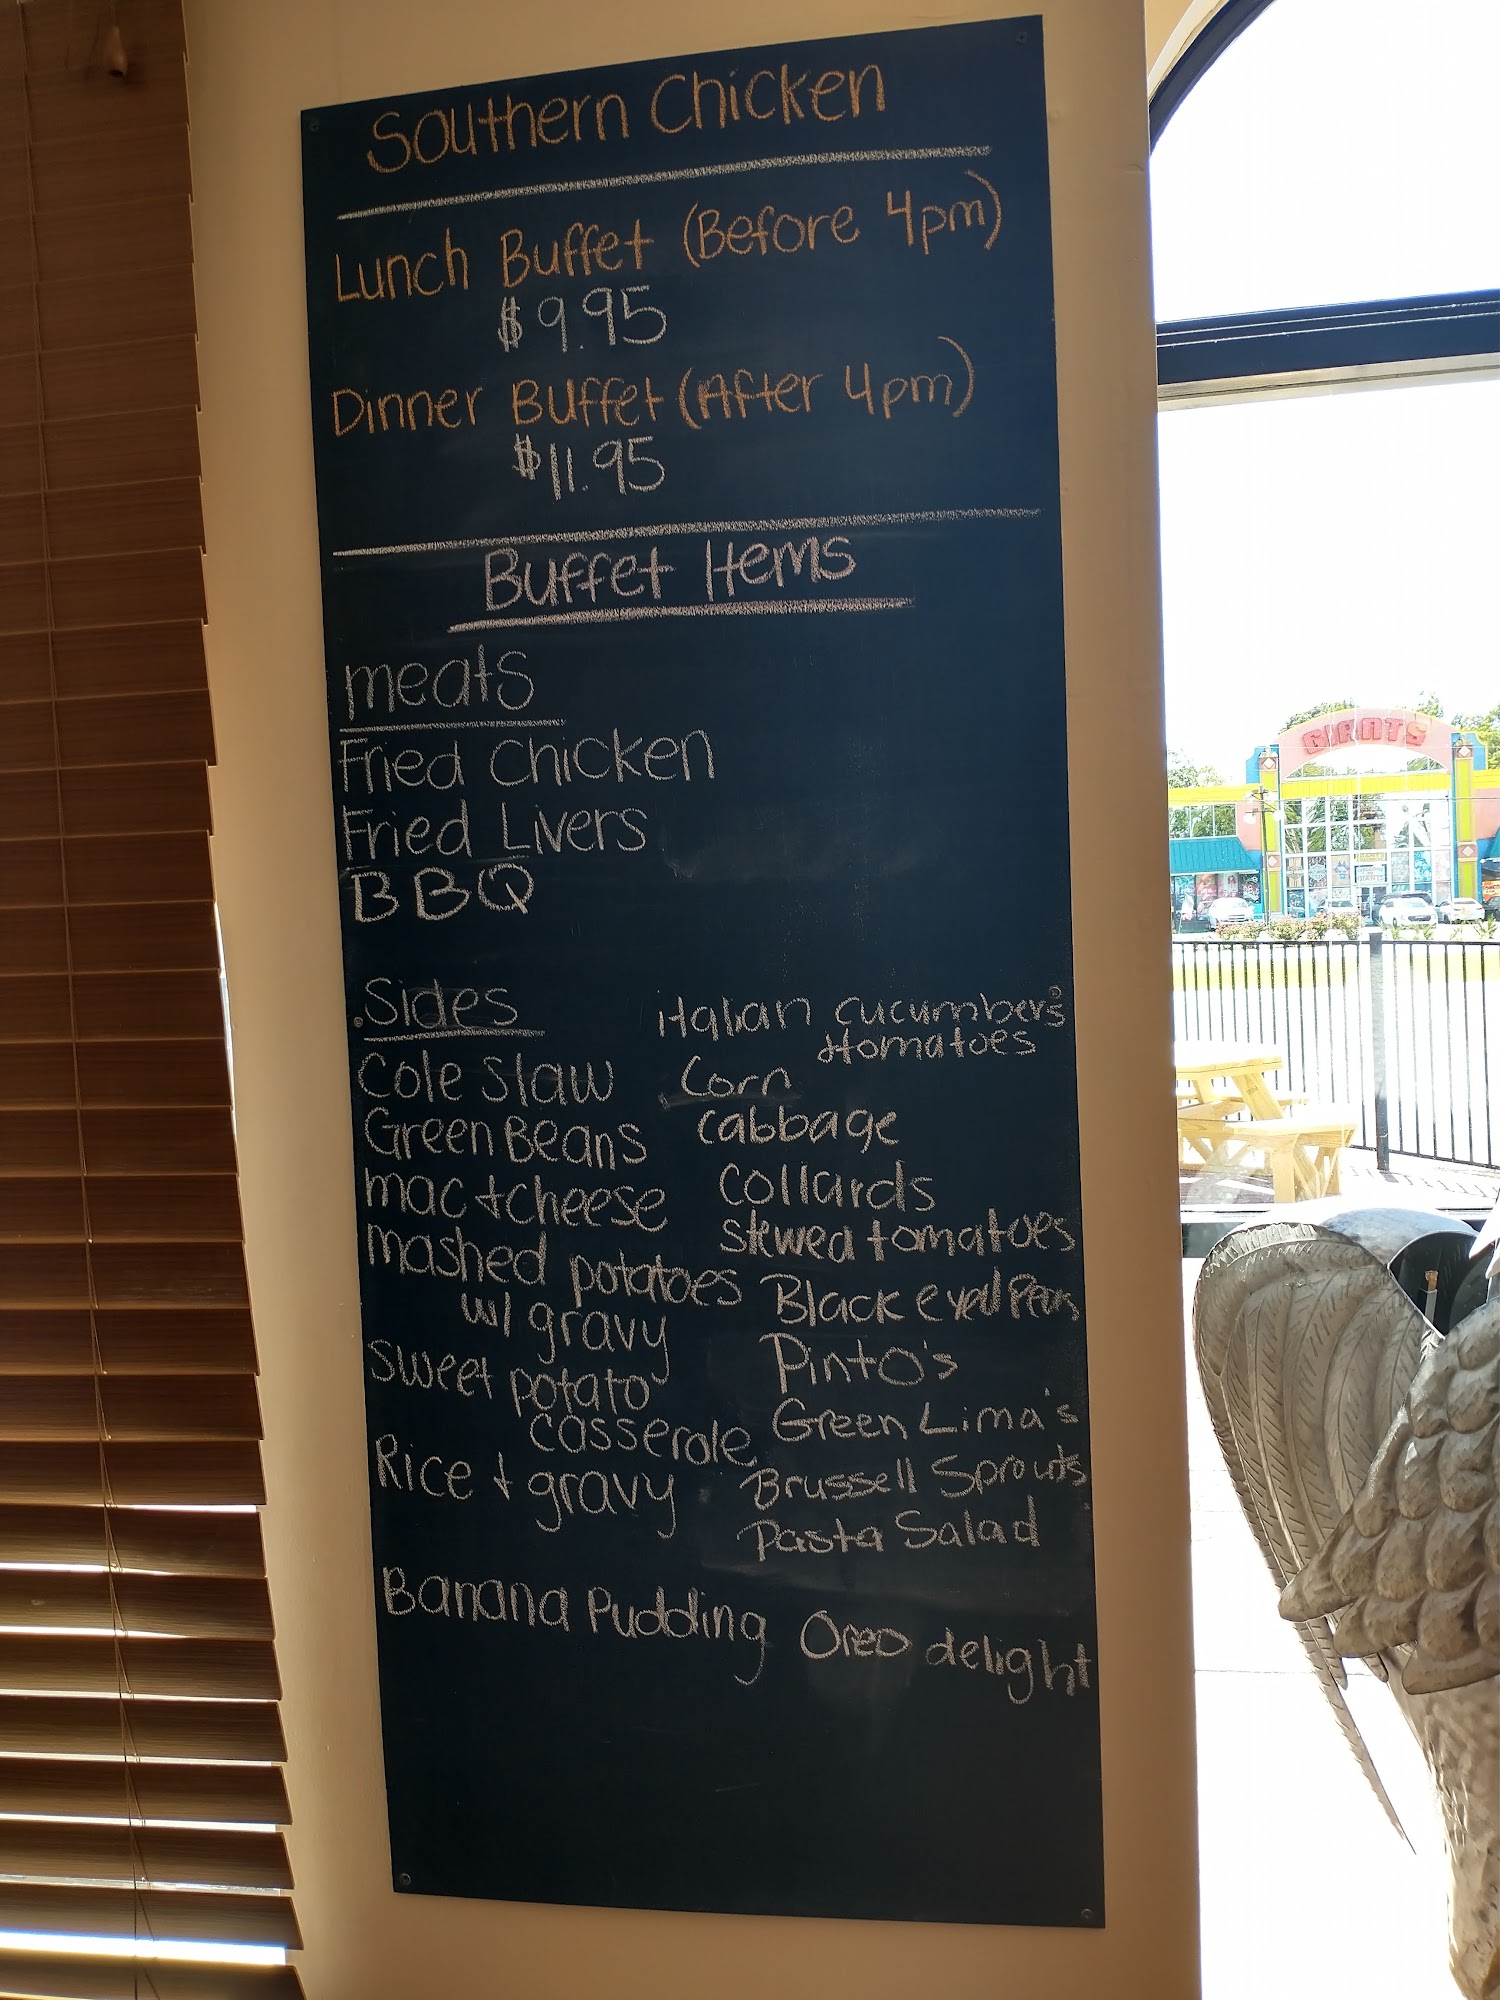 Southern Chicken
Lunch Buffet (Before 4pm)
$9.95
Dinner Buffet (After 4pm)
$11.95
Buffet Items
meats
Fried Chicken
Fried Livers
BBQ
Sides
Cole Slaw
Green Beans
mac + cheese
mashed potatoes
w/ gravy
sweet potato
casserole
Rice + gravy
italian cucumbers
+tomatoes
Corn
cabbage
collards
stewed tomatoes
Black eyed Peas
Pinto's
Green Lima's
Brussell Sprouts
Pasta Salad
Banana Pudding
Oreo delight
GIANTS